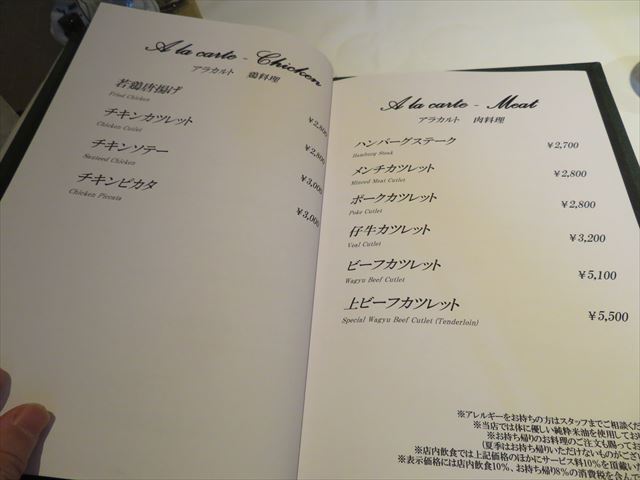 A la carte - Chicken
アラカルト 鶏料理
若鶏唐揚げ ¥2,800
Fried Chicken
チキンカツレット ¥2,800
Chicken Cutlet
チキンソテー ¥3,000
Sauteed Chicken
チキンピカタ ¥3,000
Chicken Piccata
A la carte - Meat
アラカルト 肉料理
ハンバーグステーク ¥2,700
Hamburg Steak
メンチカツレット ¥2,800
Minced Meat Cutlet
ポークカツレット ¥2,800
Poke Cutlet
仔牛カツレット ¥3,200
Veal Cutlet
ビーフカツレット ¥5,100
Wagyu Beef Cutlet
上ビーフカツレット ¥5,500
Special Wagyu Beef Cutlet (Tenderloin)
※アレルギーをお持ちの方はスタッフまでご相談くだ
※当店では体に優しい純粋米油を使用してお
※お持ち帰りのお料理のご注文も賜ってお
(夏季はお持ち帰りいただけないものがござ
※店内飲食では上記価格のほかにサービス料10%を頂戴い
※表示価格には店内飲食10%、お持ち帰り8%の消費税を含ん